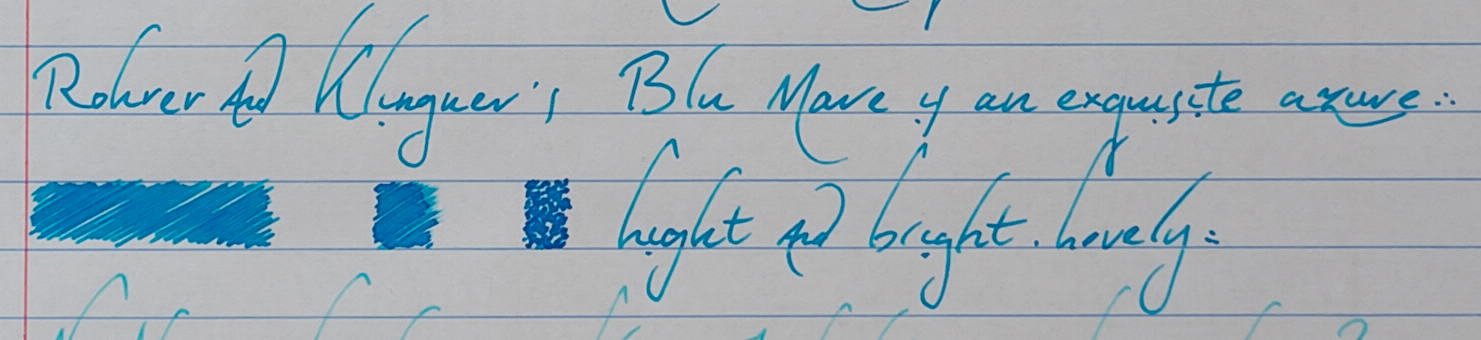 Rohrer And Klingner's Blu Mare is an exquisite azure:.
light And bright. Lovely: